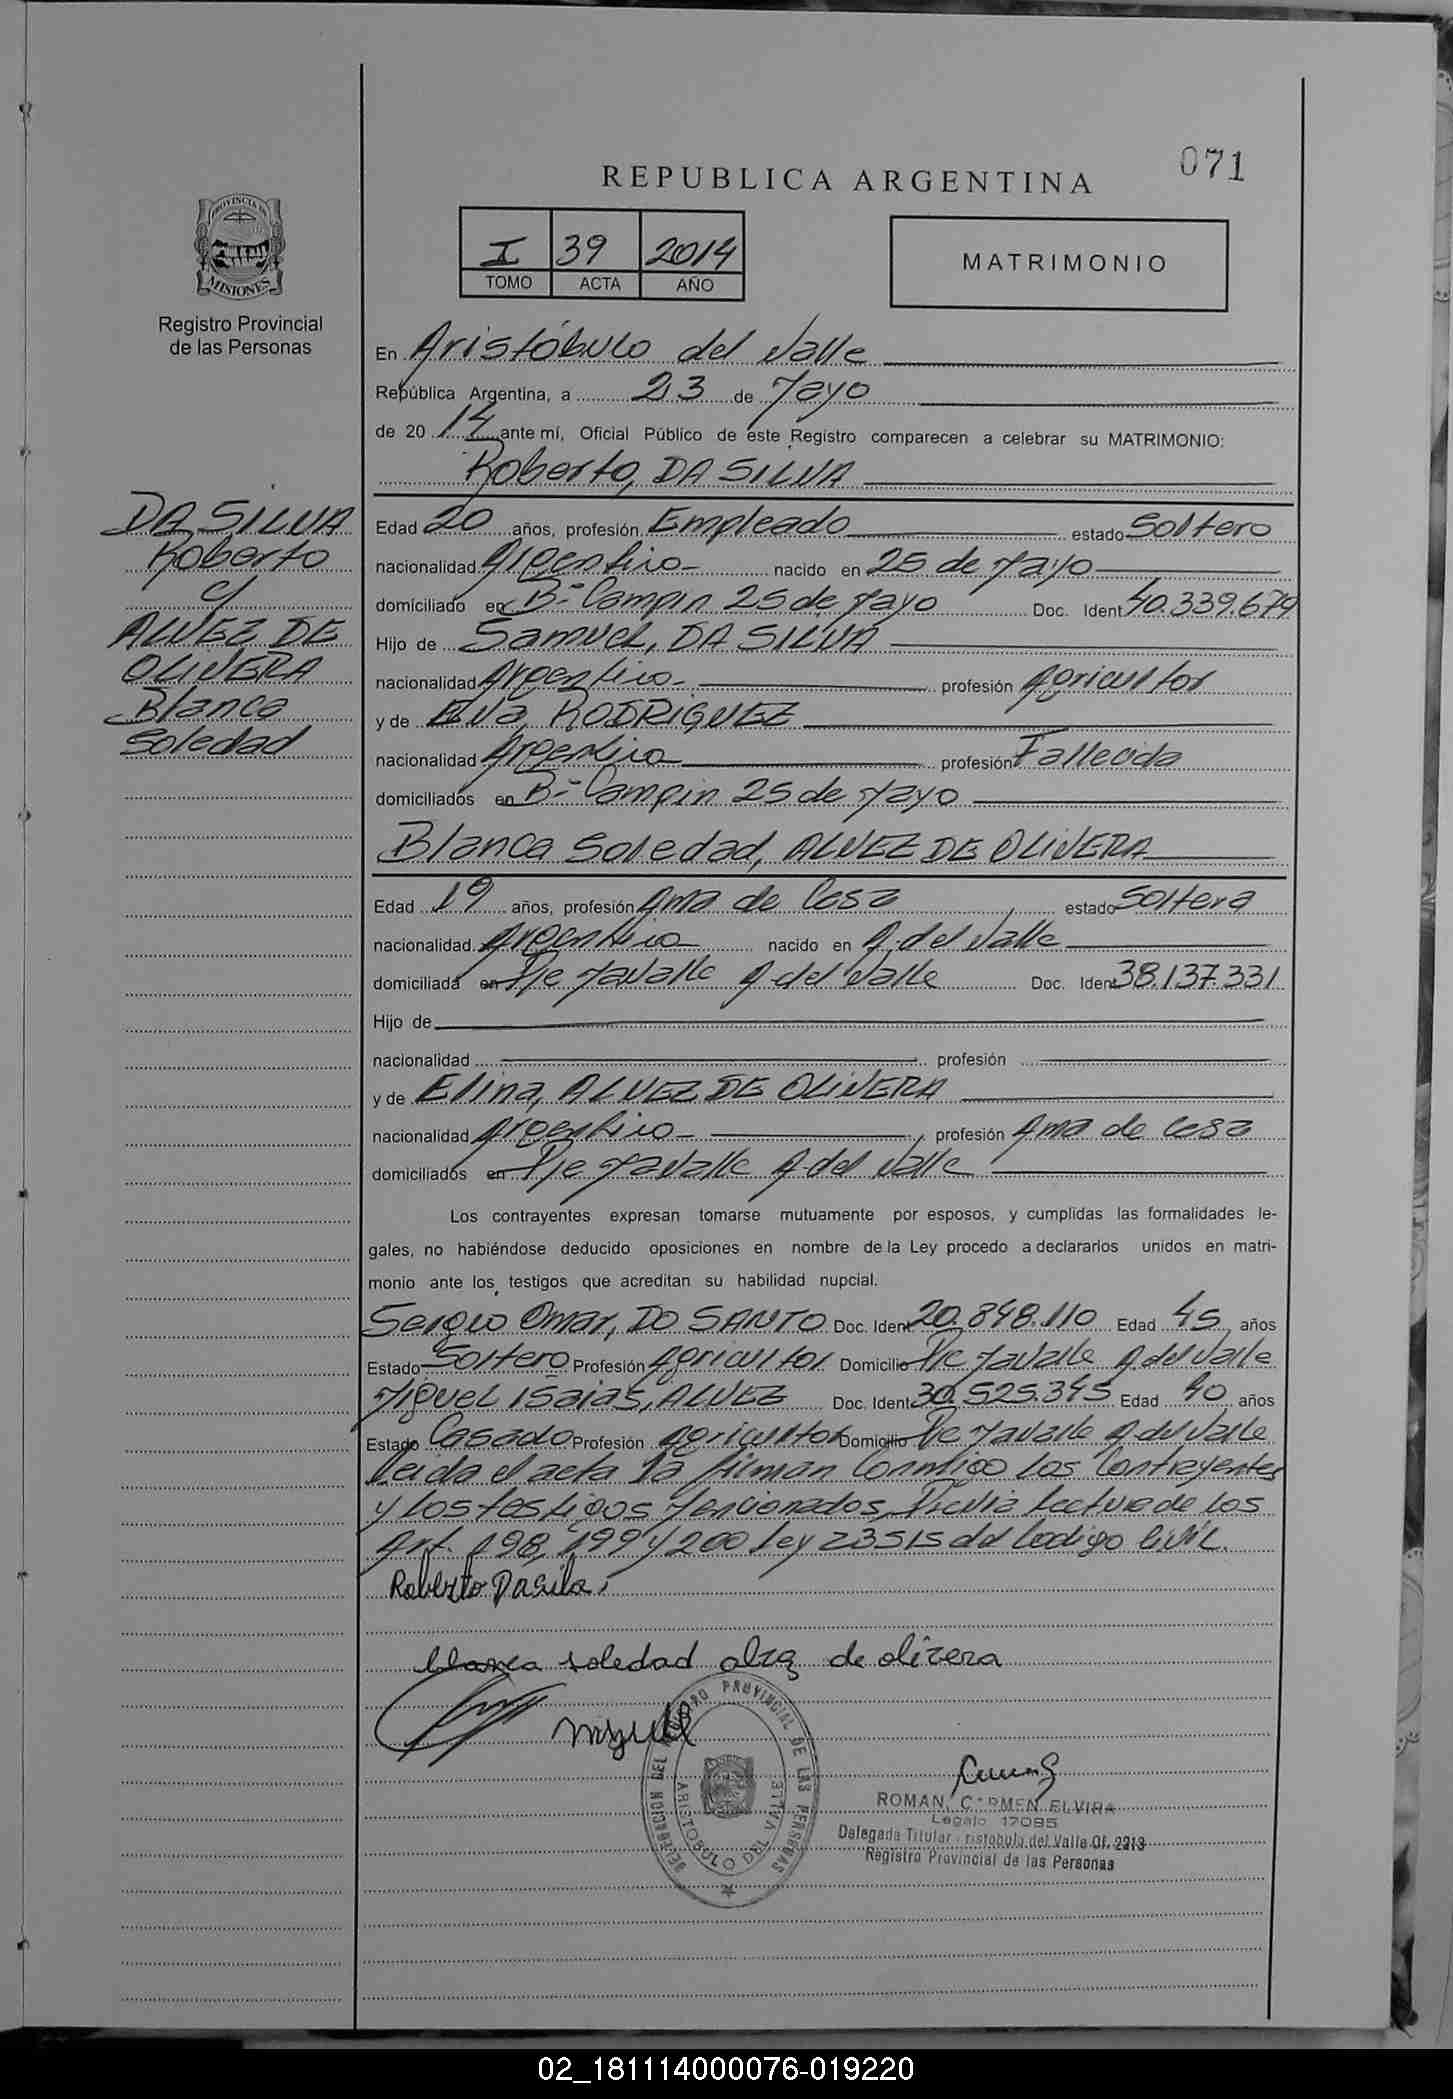 071
REPUBLICA ARGENTINA
I 39 2014
TOMO ACTA AÑO
MATRIMONIO
PROVINCIA DE
MISIONES
Registro Provincial
de las Personas
DA SILVA
Roberto
c/
ALVEZ DE
OLIVERA
Blanca
Soledad
En Aristóbulo del Valle
República Argentina, a 23 de Mayo
de 20 14 ante mí, Oficial Público de este Registro comparecen a celebrar su MATRIMONIO:
Roberto, DA SILVA
Edad 20 años, profesión Empleado estado Soltero
nacionalidad Argentino nacido en 25 de Mayo
domiciliado en Bº Campin 25 de Mayo Doc. Ident 40.339.679
Hijo de Samuel, DA SILVA
nacionalidad Argentino profesión Agricultor
y de Elva, RODRIGUEZ
nacionalidad Argentina profesión Fallecida
domiciliados en Bº Campin 25 de Mayo
Blanca Soledad, ALVEZ DE OLIVERA
Edad 19 años, profesión Ama de Casa estado Soltera
nacionalidad Argentina nacido en A. del Valle
domiciliada en Pje A. del Valle Doc. Ident 38.137.331
Hijo de
nacionalidad profesión
y de Elina, ALVEZ DE OLIVERA
nacionalidad Argentina profesión Ama de Casa
domiciliados en Pje A. del Valle
Los contrayentes expresan tomarse mutuamente por esposos, y cumplidas las formalidades le-
gales, no habiéndose deducido oposiciones en nombre de la Ley procedo a declararlos unidos en matri-
monio ante los testigos que acreditan su habilidad nupcial.
Sergio Omar, DO SANTO Doc. Ident 20.848.110 Edad 45 años
Estado Soltero Profesión Agricultor Domicilio Pje A. del Valle
Miguel Isaias, ALVEZ Doc. Ident 30.525.345 Edad 40 años
Estado Casado Profesión Agricultor Domicilio Pje A. del Valle
Leida el acta la firman Conmigo los Contrayentes
y los testigos Mencionados, Previa lectura de los
Art. 198, 199 y 200 Ley 23515 del Codigo Civil.
Roberto Dasilva
blanca soledad alvez de olivera
miguel
DELEGACION DEL REGISTRO PROVINCIAL DE LAS PERSONAS
ARISTOBULO DEL VALLE
ROMAN, CARMEN ELVIRA
Legajo 17085
Delegada Titular Aristobulo del Valle Of. 2213
Registro Provincial de las Personas
02_181114000076-019220